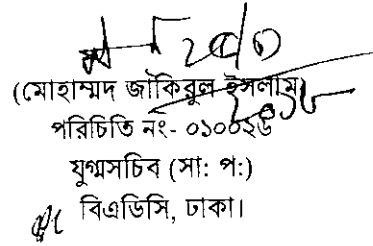 (মোহাম্মদ জাকিরুল ইসলাম)
পরিচিতি নং- ০১০০২৬
যুগ্মসচিব (সা: প:)
বিএডিসি, ঢাকা।